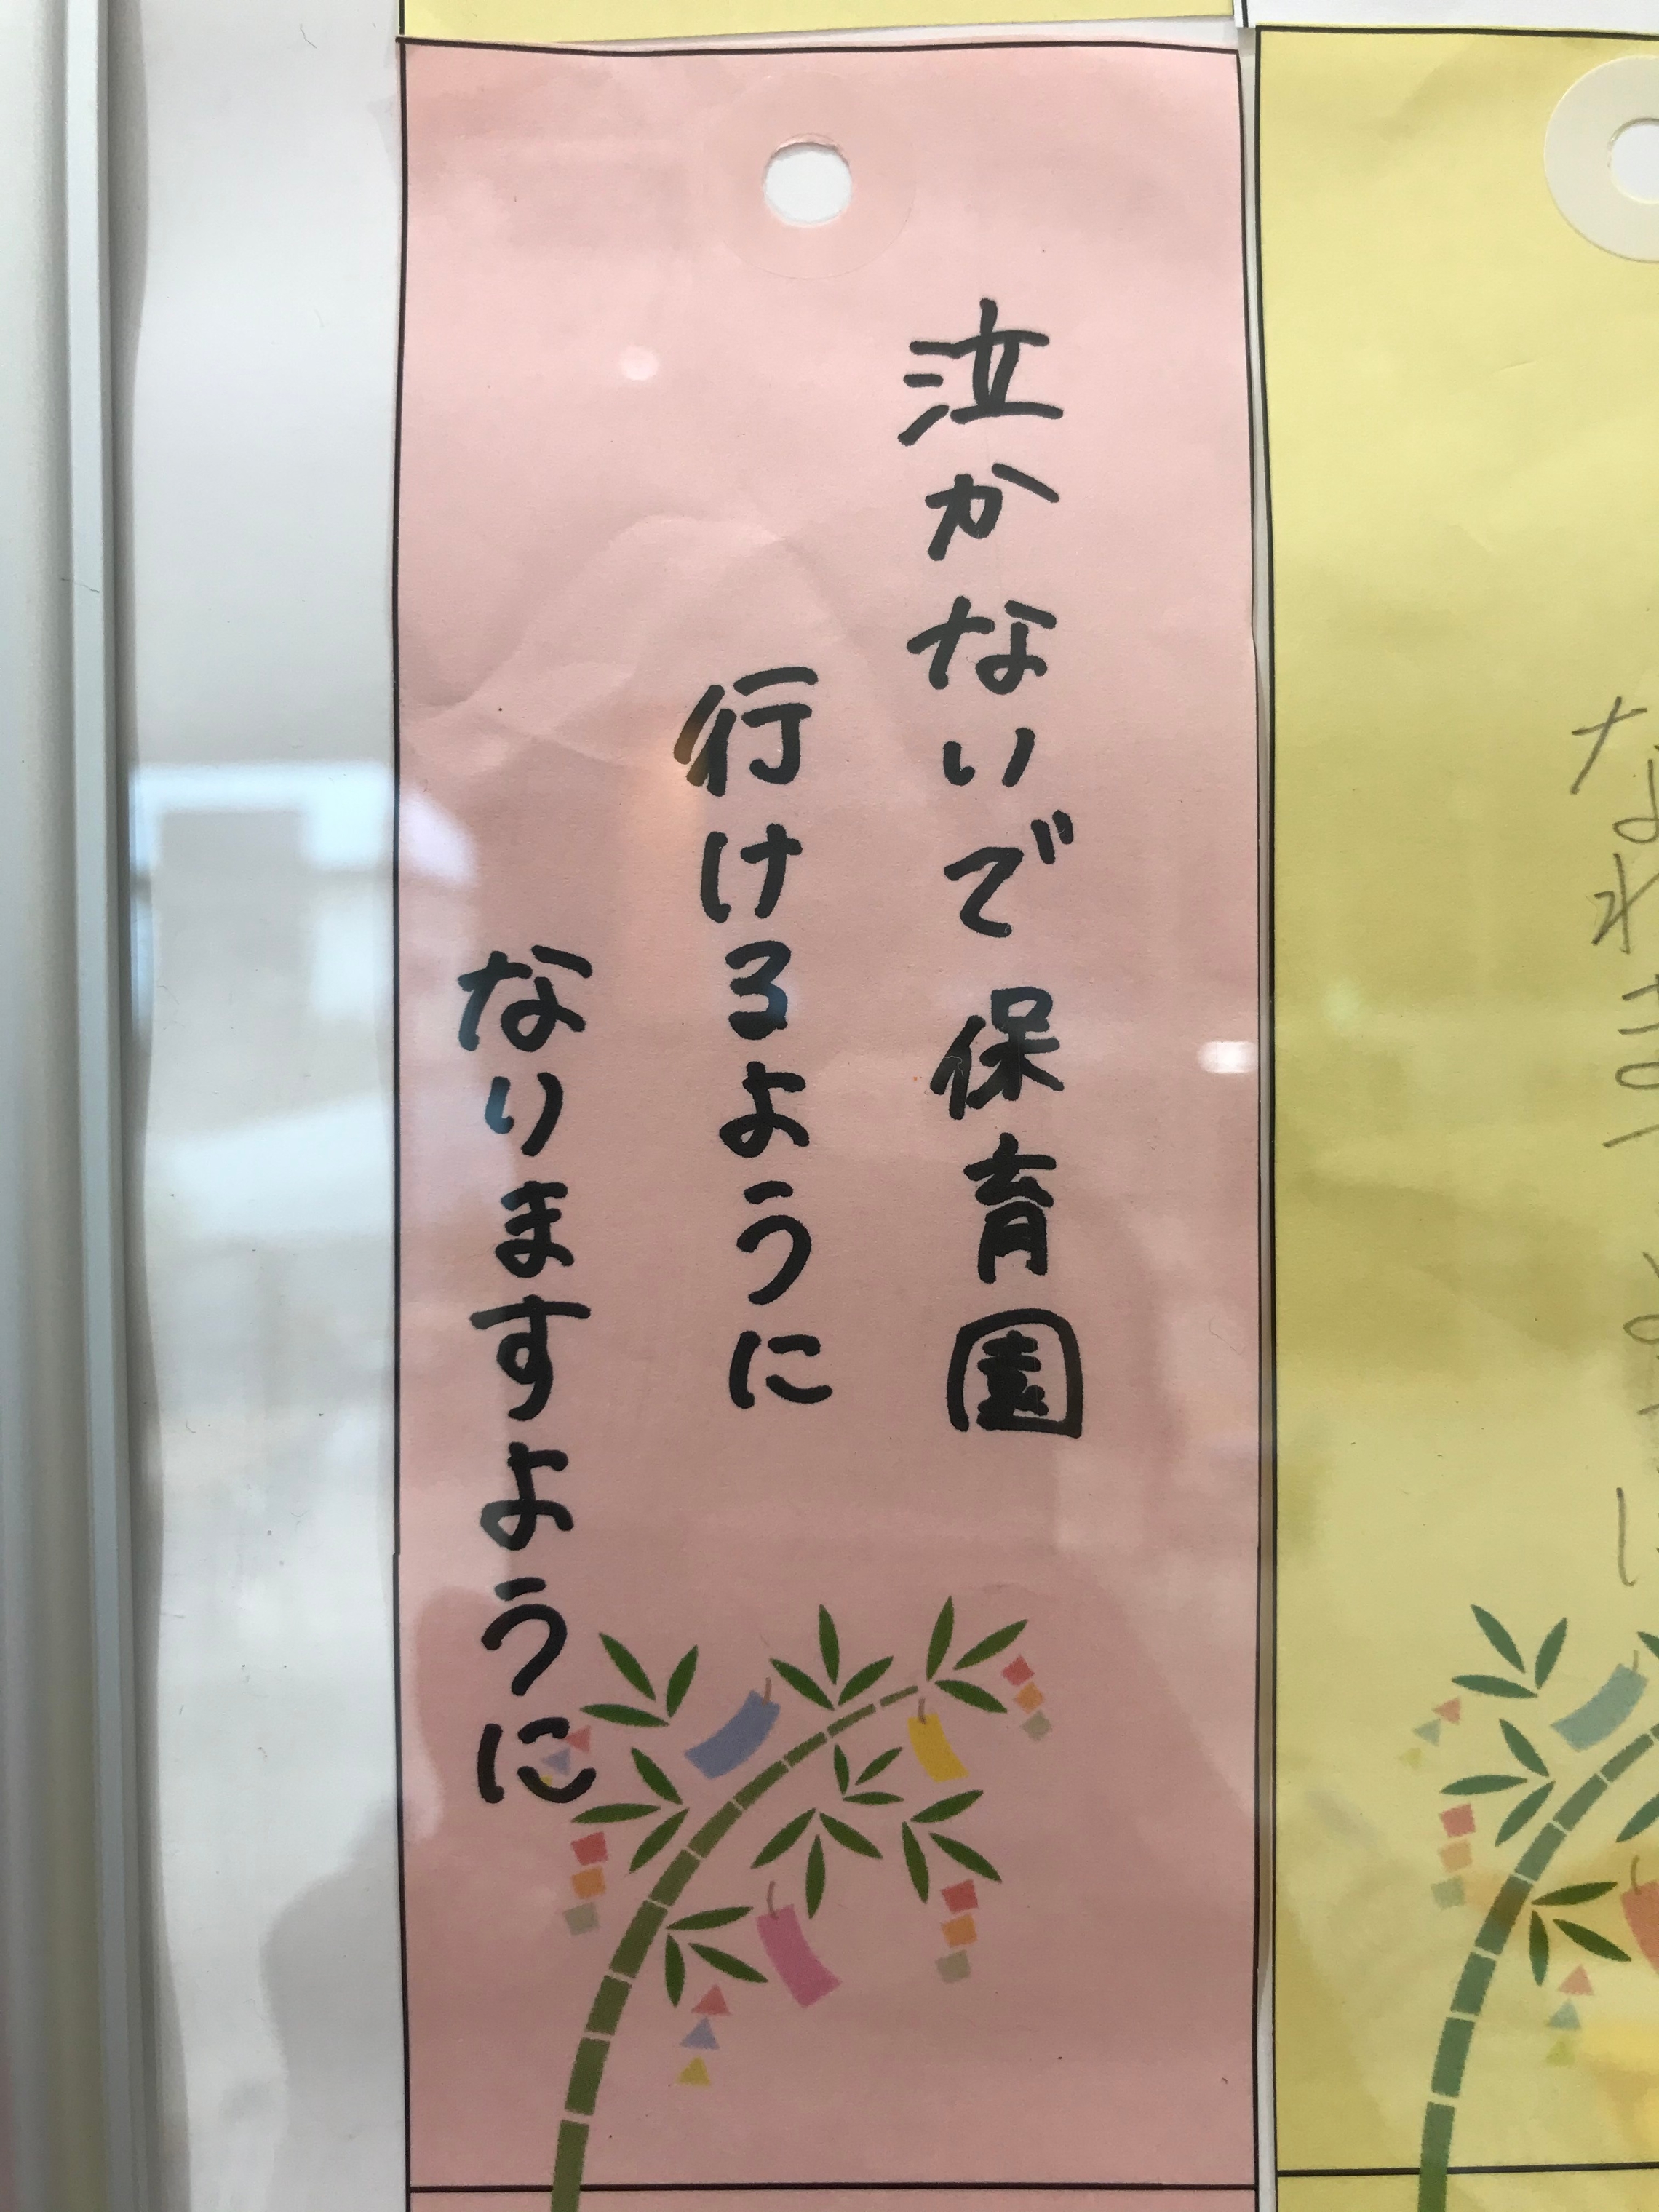 泣かないで保育園
行けるように
なりますように